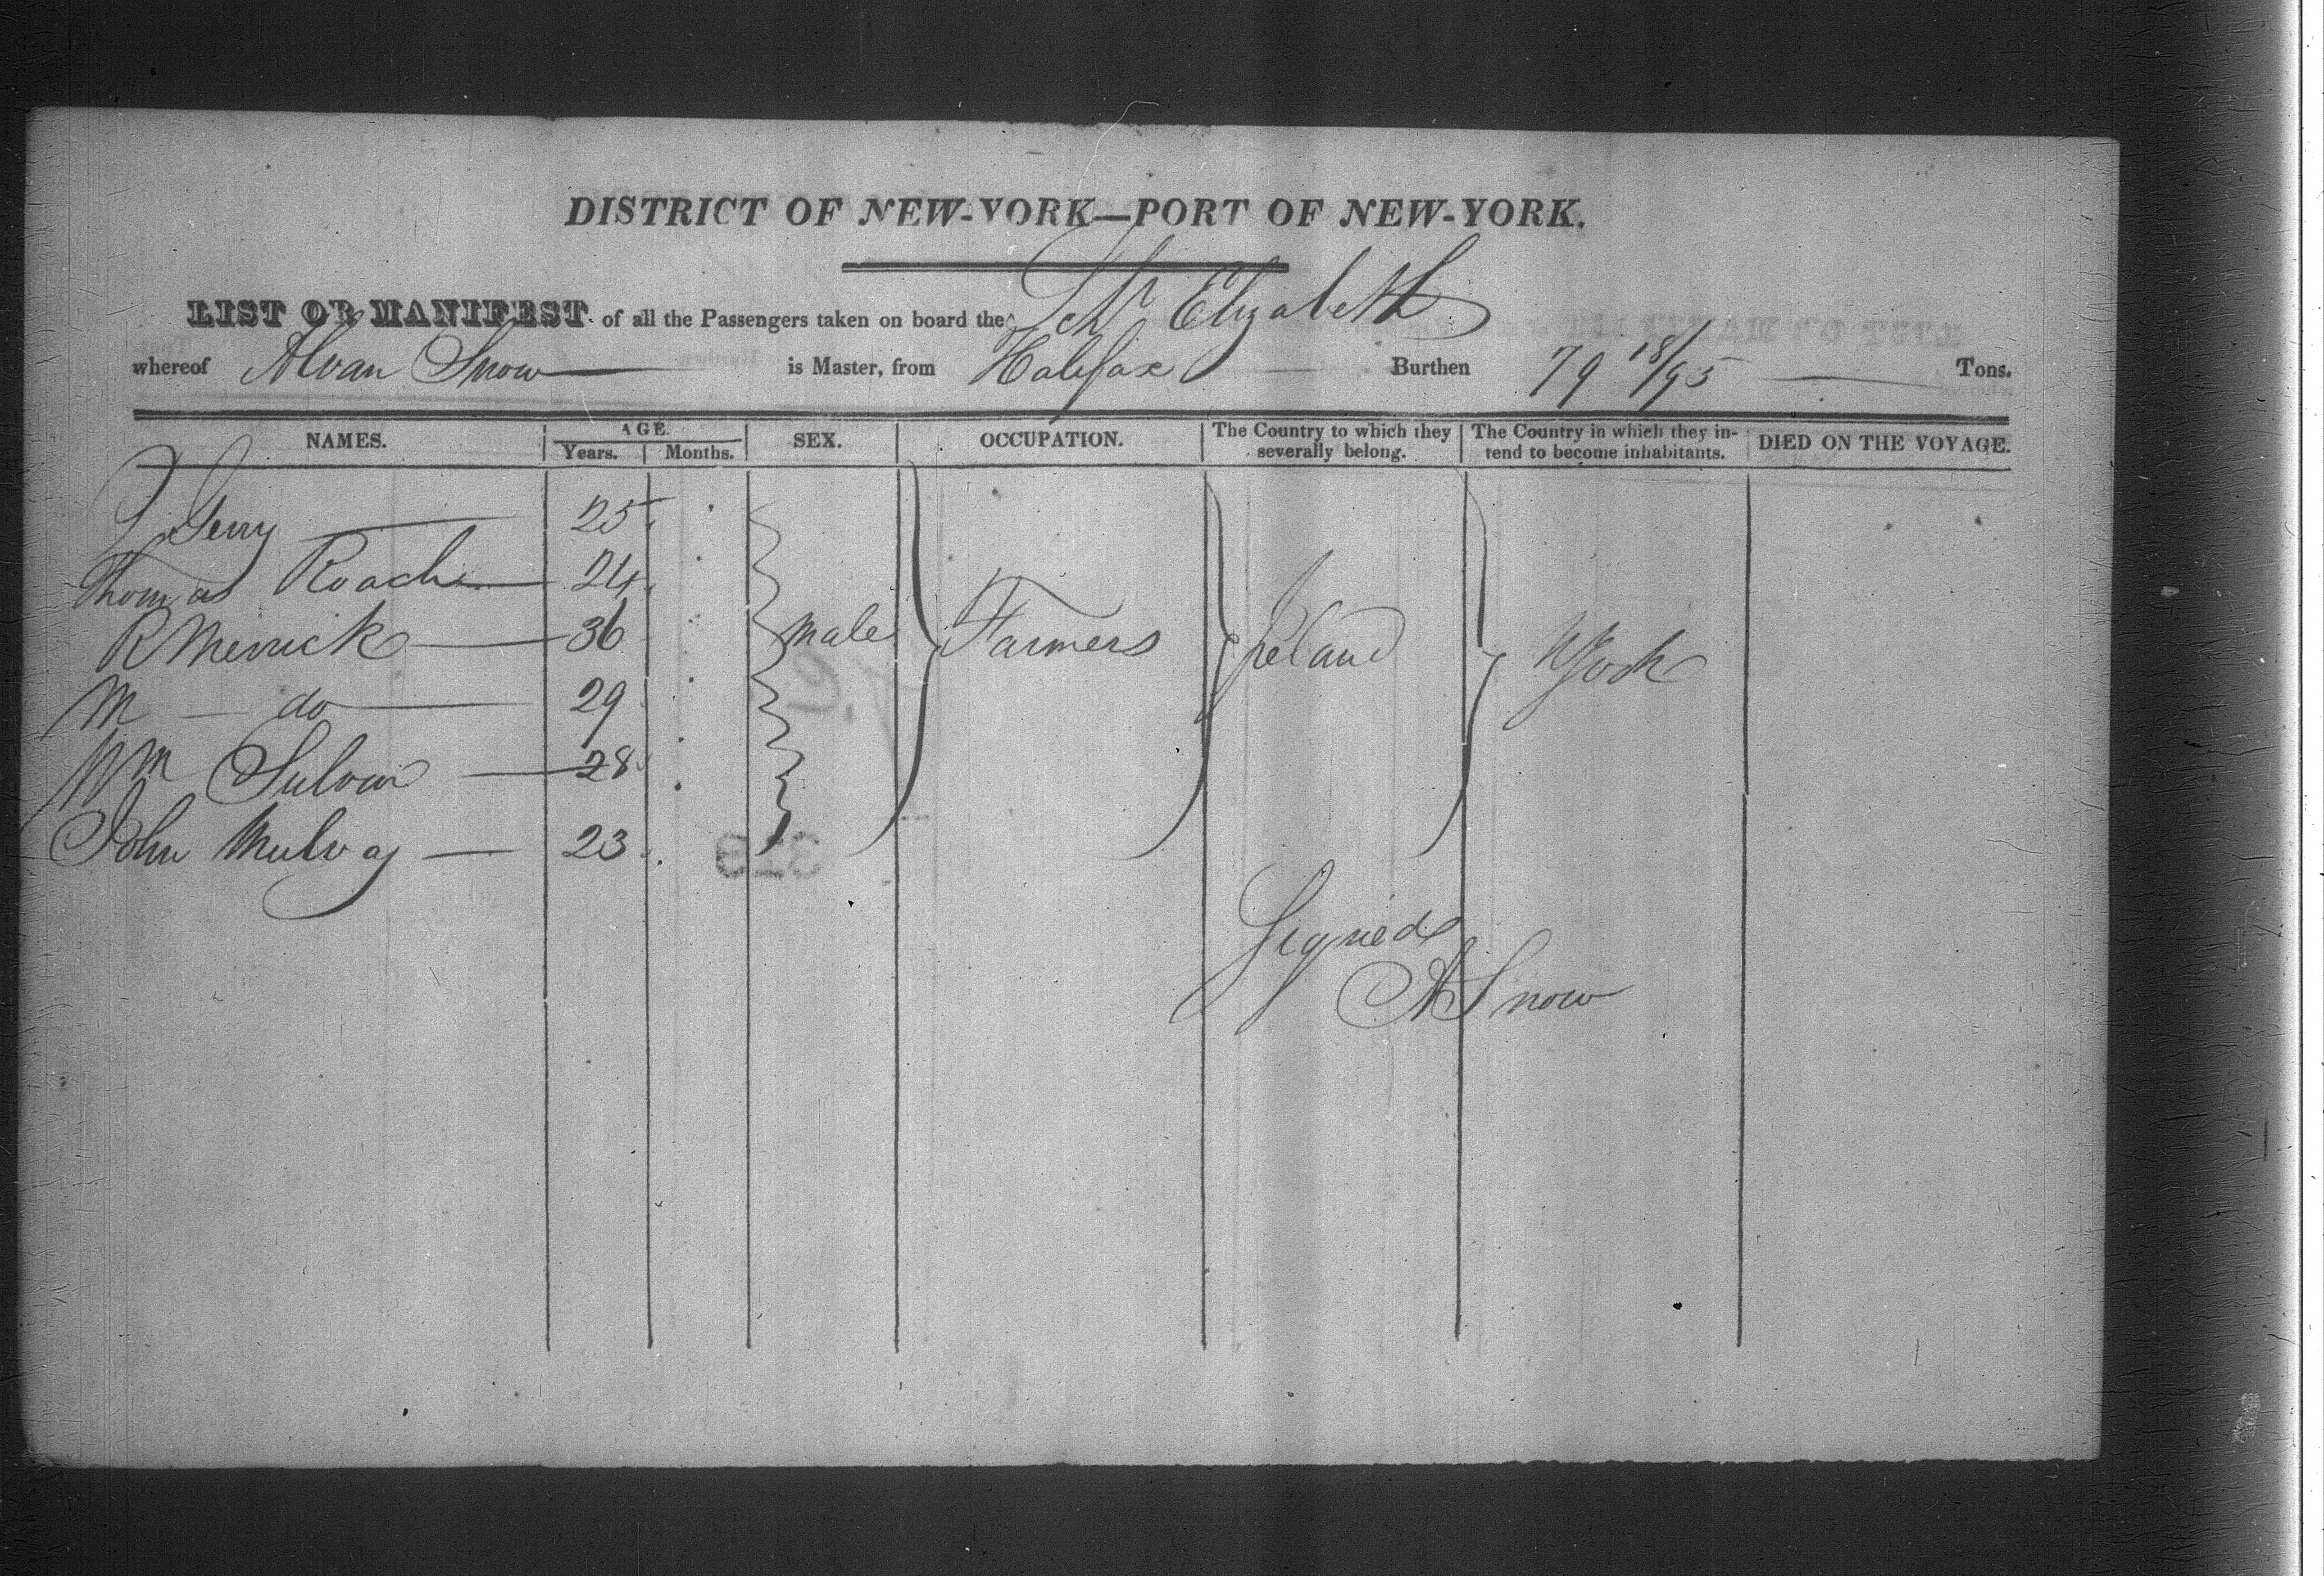 DISTRICT OF NEW-YORK—PORT OF NEW-YORK.
LIST OR MANIFEST of all the Passengers taken on board the Schr Elizabeth
whereof Alvan Snow is Master, from Halifax Burthen 79 18/95 Tons.
NAMES. AGE. Years. Months. SEX. OCCUPATION. The Country to which they severally belong. The Country in which they intend to become inhabitants. DIED ON THE VOYAGE.
Gerry 25
Thomas Roach 24
R Merrick 36 male Farmers Ireland NYork
M do 29
Wm 28
John Mulvay 23
Signed
A Snow